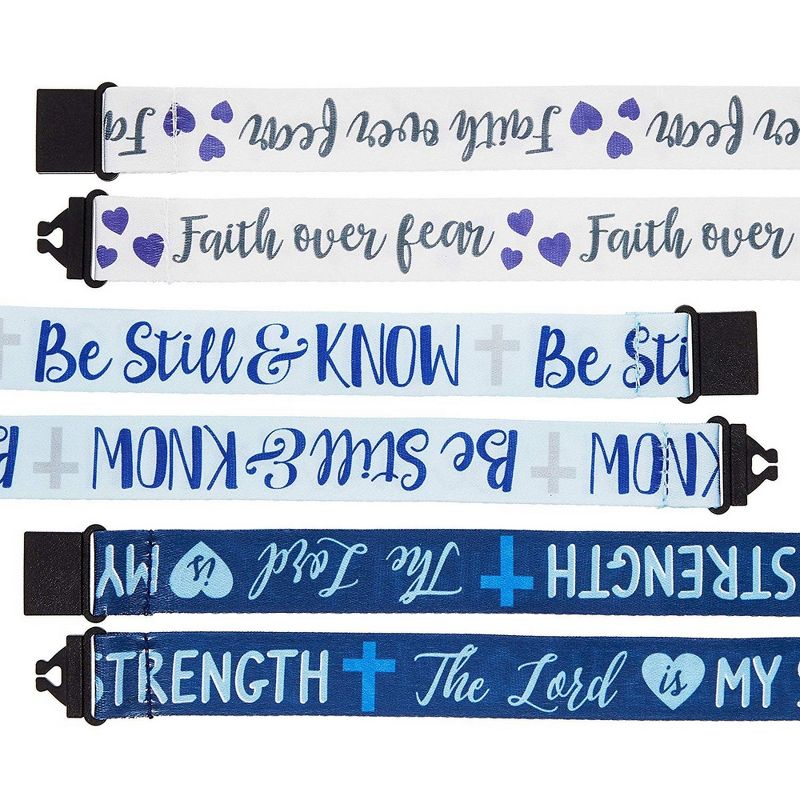 er fear Faith over fear Fa
Faith over fear Faith over
Be Still & KNOW Be Sti
KNOW Be Still & KNOW B
STRENGTH The Lord is MY
STRENGTH The Lord is MY S